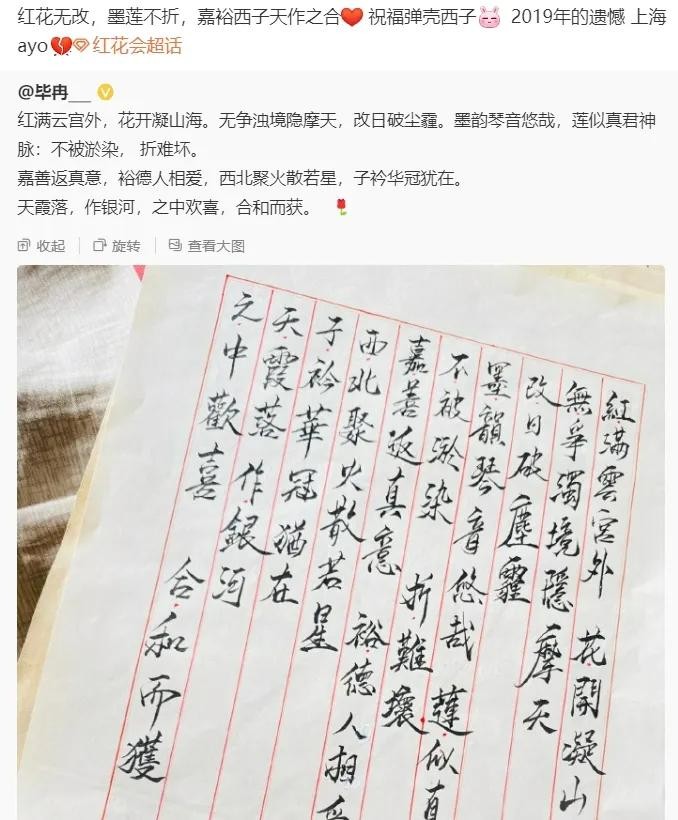 红花无改，墨莲不折，嘉裕西子天作之合❤️ 祝福弹壳西子🐰 2019年的遗憾 上海
ayo💔红花会超话
@毕冉___
红满云宫外，花开凝山海。无争浊境隐摩天，改日破尘霾。墨韵琴音悠哉，莲似真君神
脉：不被淤染， 折难坏。
嘉善返真意，裕德人相爱，西北聚火散若星，子衿华冠犹在。
天霞落，作银河，之中欢喜，合和而获。 🌹
收起
旋转
查看大图
紅满雲宮外 花開凝山
無爭濁境隱摩天
改日破塵霾
墨韻琴音悠哉 蓮似真
不被淤染 折難壞
嘉善返真意 裕德人相
西北聚火散若星
子衿華冠猶在
天霞落 作銀河
之中歡喜 合和而獲